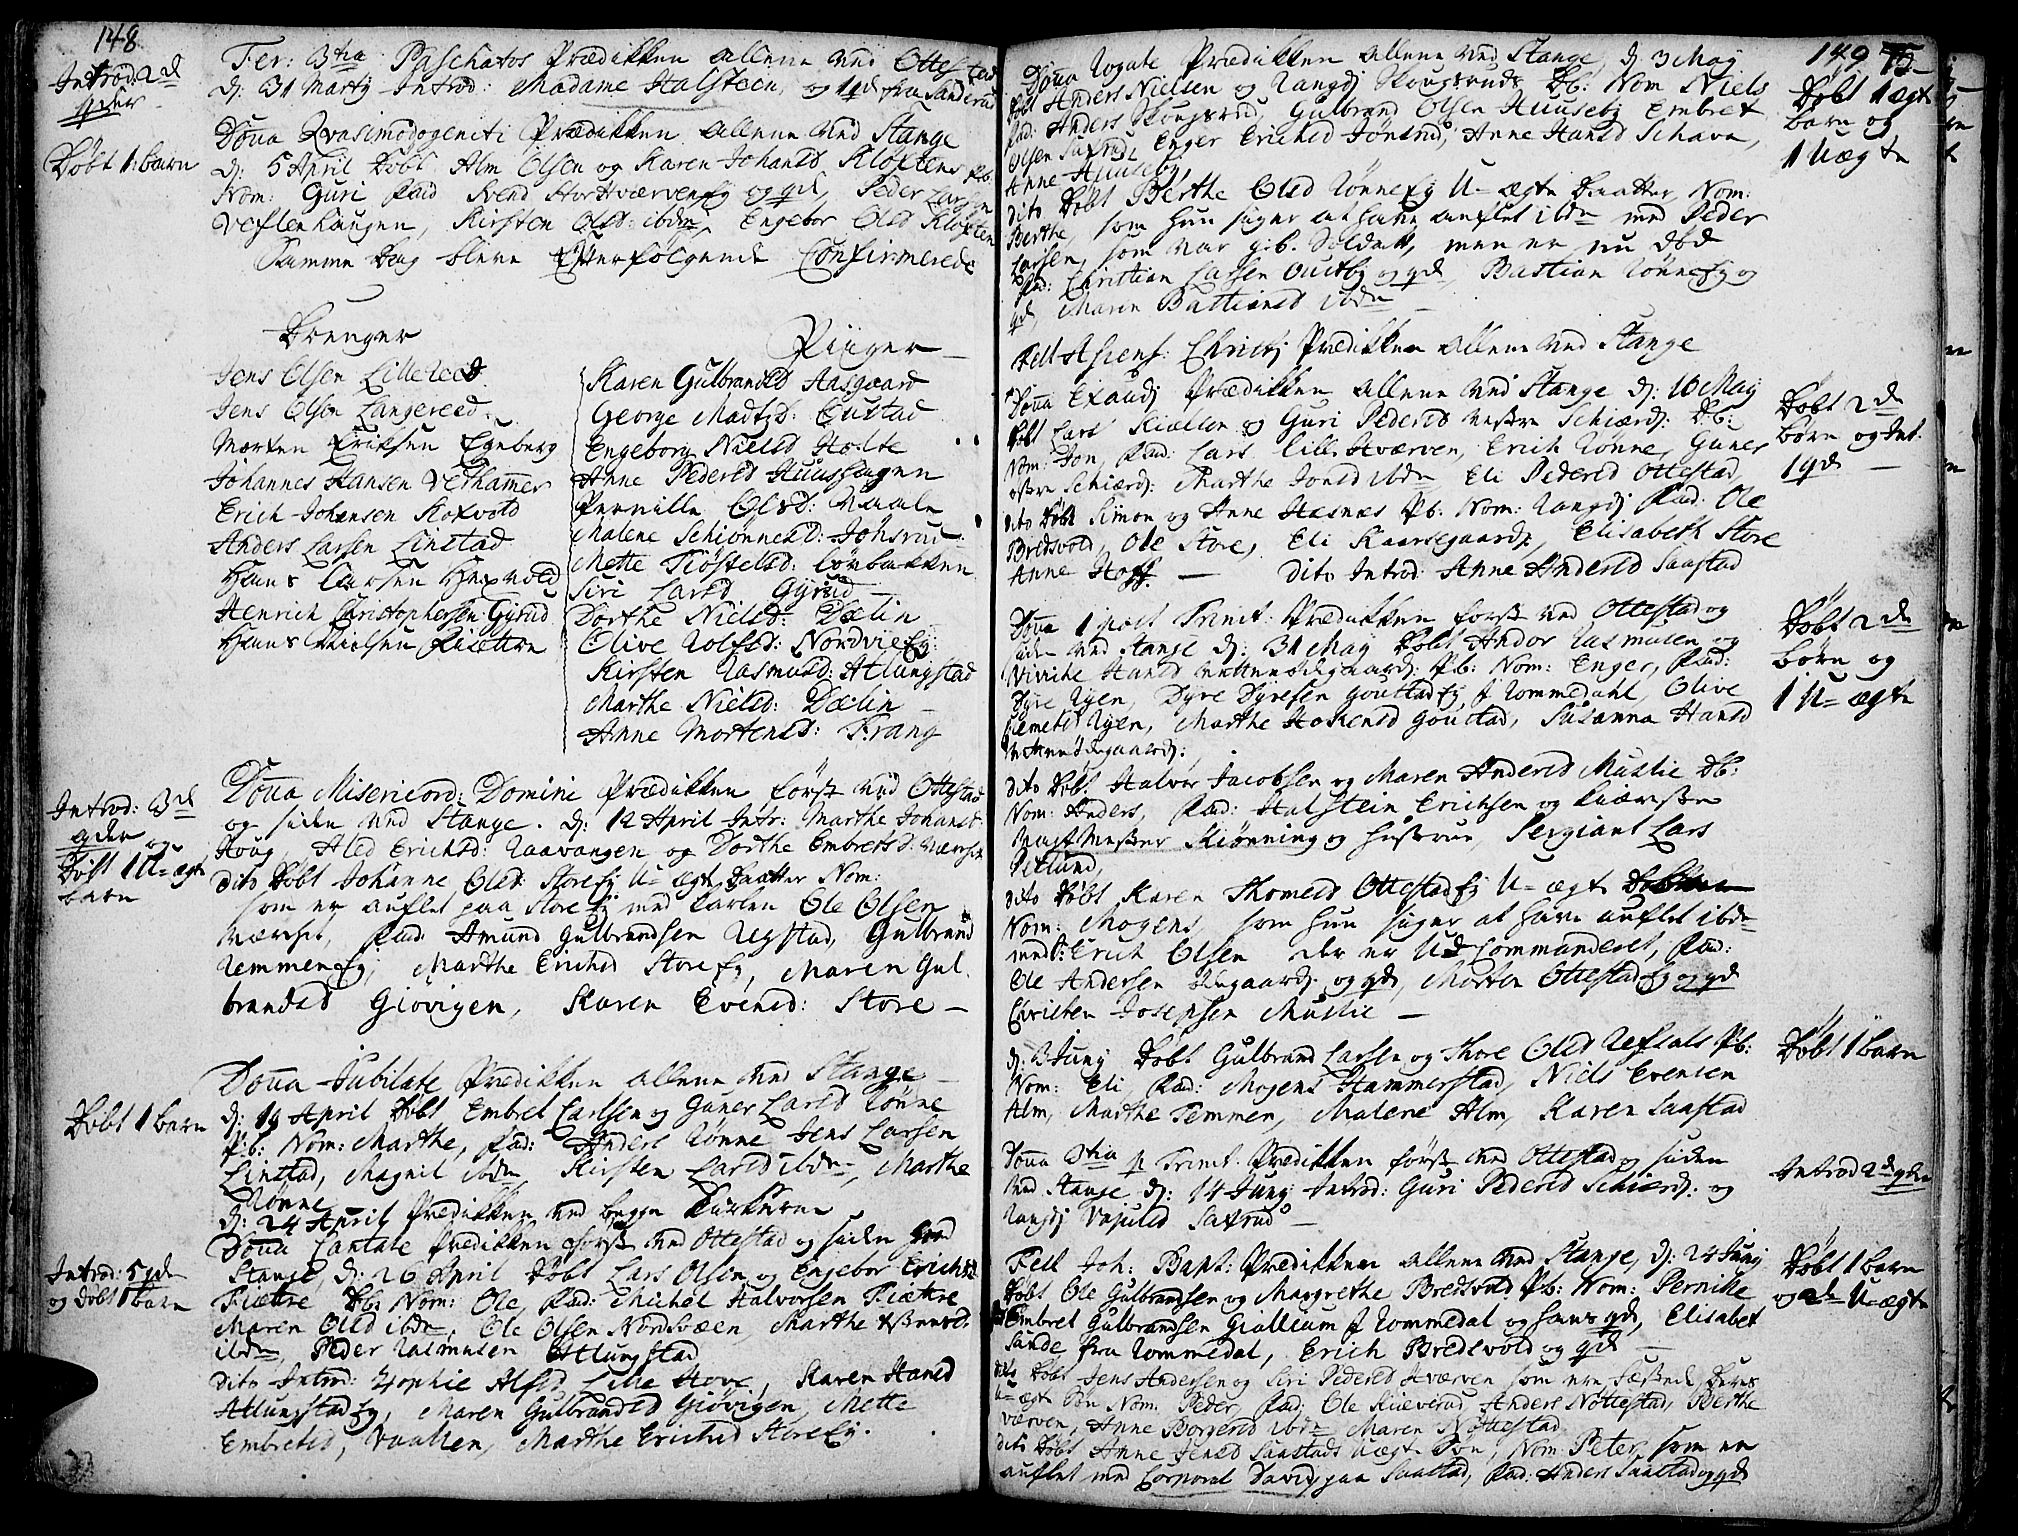 148
Introd: 2de
qder
Fer: 3tia Paschatos Prædikken allene ved Ottestad
d: 31 Martj Introd: Madame Halsteen, og 1 qd fra Sanderud
Dona Qvasimodogeniti Prædikken allene ved Stange
Døbt 1: barn
d: 5 April Døbt Alm Olsen og Karen Johansd Kloftens Pb:
Nom: Guri Fad Svend StorHværvenEy og qd, Peder Larsen
Vestenhaugen, Kirsten Olsd: ibdm, Engebor Olsd Kloften
Samme Dag bleve Efterfølgende Confirmerede
Drenger
Jens Olsen Lillereed
Jens Olsen Langereed
Morten Ericksen Egneberg
Johannes Hansen Vedhammer
Erich Johansen Kokvold
Anders Larsen Linstad
Hans Larsen Hexvold
Henrich Christophersen Gyrud
Hans Nielsen Fiættre
Piiger
Karen Gulbrandsd Aasgaard
George Madtsd: Custad
Engeborg Nielsd Holte
Anne Pedersd Huushagen
Pernille Olsd: Vaale
Malene Schiønnesd: Johsrud
Mette Tiøstelsd: Lørbakken
Siri Larsd Gyrud
Dorthe Nielsd: Dælin
Olive Rolfsd: NordvieEy:
Kirsten Rasmusd: Atlungstad
Marthe Nielsd: Dælin
Anne Mortensd: Frang
Introd: 3de
qder og
Døbt 1 U=ægte
barn
Dona Misericord: Domini Prædikken først ved Ottestad
og siden ved Stange. d: 12 April Intr: Marthe Johansd
Houg, Aled Erichsd: Raavangen og Dorthe Embretsd: Værset
dito Døbt Johanne Olsd: StoreEy U=ægte Daatter Nom:
som er auflet paa StoreEy med Karlen Ole Olsen
Værset, Fad: Amund Gulbrandsen Regstad, Gulbrand
RemmenEy, Marthe Erichsd StoreEy, Maren Gul-
brandsd Giøvigen, Karen Evensd: Store
Dona Jubilate Prædikken allene ved Stange
Døbt 1 barn
d: 19 April Døbt Embret Carlsen og Guner Larsd Rønne
Pb: Nom: Marthe, Fad: Anders Rønne Jens Larsen
Linstad, Magnil ibdm, Kirsten Larsd ibdm, Marthe
Rønne
d: 24 April Prædikken ved begge Kirkerne
Dona Cantate Prædikken først ved Ottestad og siden ved
Introd: 5 qder
og døbt 1 barn
Stange, d: 26 April Døbt Lars Olsen og Engebor Erichsd
Fiættre Db: Nom: Ole, Fad: Michel Halvorsen Fiættre
Maren Olsd ibdm, Ole Olsen Nordsveen, Marthe
ibdm, Peder Rasmusen Atlungstad
dito Introd: Sophie Alfsd Lille Hove, Karen Hansd
AtlungstadEy, Maren Gulbrandsd Giøvigen, Mette
Embretsd, Vaallen, Marthe Erichsd StoreEy.
149
Dona Rogate Prædikken allene ved Stange, d: 3 Maj
Døbt 1 ægte
barn og
1 Uægte
Døbt Anders Nielsen og Rangdj Skougsruds Db: Nom Niels
Fad: Anders Skougsrud, Gulbrand Olsen Huusebj Embret
Olsen Saxrud, Enger Erichsd Jønsrud, Anne Hansd Schava,
Anne Huusebj,
dito Døbt Berthe Olsd RønneEy U=ægte Daatter, Nom:
Berthe, som hun siger at have auflet ibdm med Peder
Larsen, som var g:b. Soldat, men er nu død
Fad: Christian Larsen Oustbj og qd, Bastian RønneEy og
qd, Maren Bastiansd ibdm
Fest Ascens: Christj Prædikken allene ved Stange
Døbt 2de
børn og Int.
1 qd
Dona Exaudj Prædikken allene ved Stange d: 10 Maj
Døbt Lars Kiellen og Guri Pedersd Schiærdj: Db:
Nom: Jon, Fad: Lars Lille Hværven, Erich Rønne, Guner
østre Schiærdj: Marthe Jonsd ibdm Eli Pedersd Ottestad
dito Døbt Simon og Anne Hesnæs Pb: Nom: Rangdj Fad: Ole
Bredsvold, Ole Store, Eli Kaarsegaardj, Elisabeth Store
Anne Hoff — dito Introd: Anne Andersd Saastad
Døbt 2de
børn og
1 U=ægte
Dona 1 post Trinit: Prædikken først ved Ottestad og
siden ved Stange d: 31 Maj Døbt Andor Rasmusen og
Wiviche Hansd Pb: Nom: Enger, Fad:
Dyre Ryen, Dyre Dyresen GoustadEy f Rommedahl, Olive
Clemetsd Ryen, Marthe Haagensd Goustad, Susanna Hansd
dito Døbt Halvor Jacobsen og Maren Andersd Muslie Db:
Nom: Anders, Fad: Halstein Erichsen og
Skiønning og Hustrue, Sergiant Lars
dito Døbt Karen Thomesd OttestadEy U=ægte
Nom: Mogens, som hun siger at have auflet ibdm
med Erich Olsen der er Ud Commanderet, Fad:
Ole Andersen og qd, Morten OttestadEy og qd
Christen Josephsen Muslie —
Døbt 1 barn
d: 3 Junj Døbt Gulbrand Larsen og Thore Olsd Refsals Pb:
Nom: Eli Fad: Mogens Hammerstad, Niels Evensen
Alm, Marthe Temmen, Malene Alm, Karen Saastad
Introd 2de qder
Dona 3tia p Trinit. Prædikken først ved Ottestad og siden
ved Stange d: 14 Junj Introd: Guri Pedersd Schiærdj: og
Rangdj Saxrud —
Døbt 1 barn
og 2de U=ægte
Fest Joh: Bapt: Prædikken allene ved Stange, d: 24 Junj
Døbt Ole Gulbrandsen og Margrethe Bredsvold Pb: Nom: Pernike
Embret Gulbrandsen Giallum f Rommedal og hans qd, Elisabet
Sande fra Rommedal, Erich Bredsvold og qd —
dito Døbt Jens Andersen og Siri Pedersd Hværven som ere Fæstede deres
U=ægte Søn Nom: Peder, Fad: Ole Kiæverud, Anders Nøttestad, Berthe
værven, Anne Borgersd ibdm Maren Nøttestad
dito Døbt Anne Jensd Saastads Uægte Søn, Nom: Peter, som er
auflet med Corporal David, paa Saastad, Fad: Anders Saastad og qd